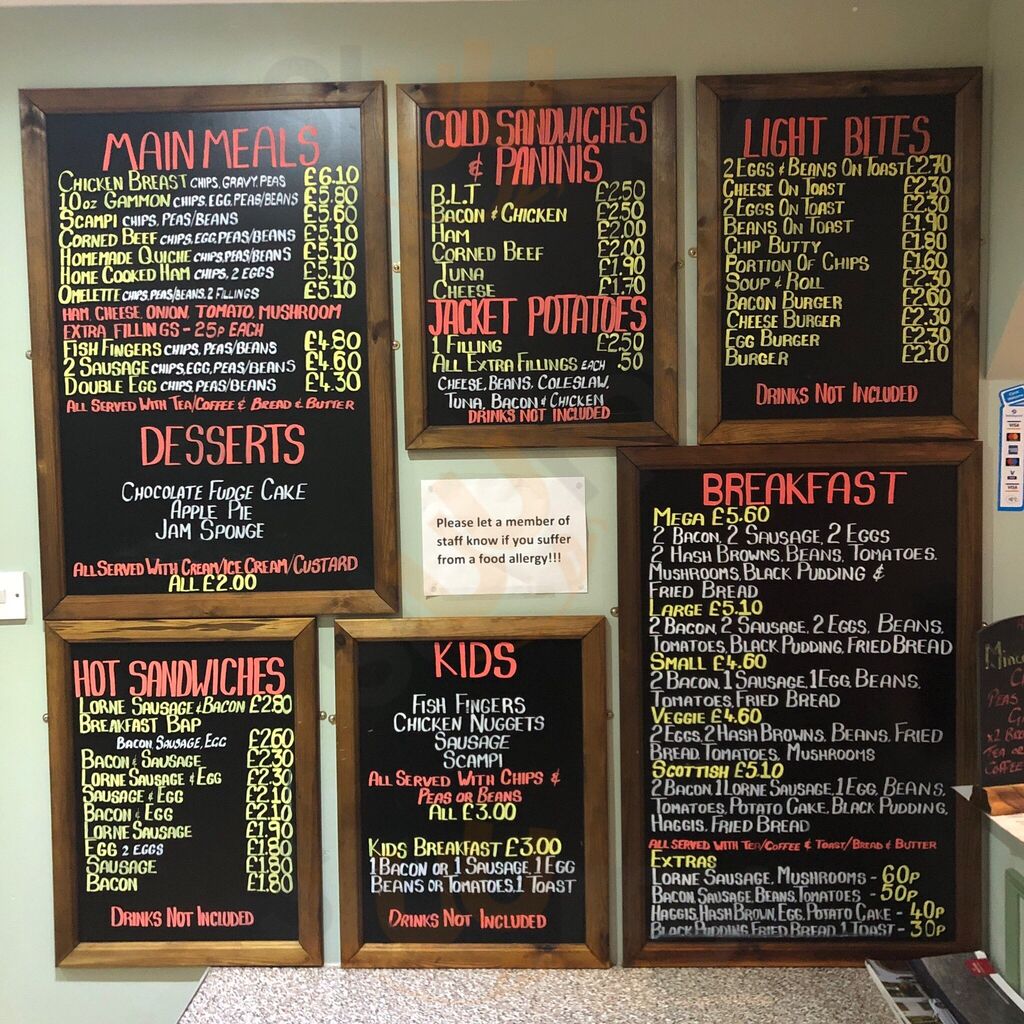 MAIN MEALS
CHICKEN BREAST CHIPS, GRAVY, PEAS £6.10
10 OZ GAMMON CHIPS, EGG, PEAS/BEANS £5.80
SCAMPI CHIPS, PEAS/BEANS £5.60
CORNED BEEF CHIPS, EGG, PEAS/BEANS £5.10
HOMEMADE QUICHE CHIPS, PEAS/BEANS £5.10
HOME COOKED HAM CHIPS, 2 EGGS £5.10
OMELETTE CHIPS, PEAS/BEANS, 2 FILLINGS £5.10
HAM, CHEESE, ONION, TOMATO, MUSHROOM
EXTRA FILLINGS - 25P EACH
FISH FINGERS CHIPS, PEAS/BEANS £4.80
2 SAUSAGE CHIPS, EGG, PEAS/BEANS £4.60
DOUBLE EGG CHIPS, PEAS/BEANS £4.30
ALL SERVED WITH TEA/COFFEE & BREAD & BUTTER
DESSERTS
CHOCOLATE FUDGE CAKE
APPLE PIE
JAM SPONGE
ALL SERVED WITH CREAM/ICE CREAM/CUSTARD
ALL £2.00
COLD SANDWICHES
& PANINIS
B.L.T £2.50
BACON & CHICKEN £2.50
HAM £2.00
CORNED BEEF £2.00
TUNA £1.90
CHEESE £1.70
JACKET POTATOES
1 FILLING £2.50
ALL EXTRA FILLINGS EACH .50
CHEESE, BEANS, COLESLAW,
TUNA, BACON & CHICKEN
DRINKS NOT INCLUDED
LIGHT BITES
2 EGGS & BEANS ON TOAST £2.70
CHEESE ON TOAST £2.30
2 EGGS ON TOAST £2.30
BEANS ON TOAST £1.90
CHIP BUTTY £1.80
PORTION OF CHIPS £1.60
SOUP & ROLL £2.30
BACON BURGER £2.60
CHEESE BURGER £2.30
EGG BURGER £2.30
BURGER £2.10
DRINKS NOT INCLUDED
Please let a member of
staff know if you suffer
from a food allergy!!!
HOT SANDWICHES
LORNE SAUSAGE & BACON £2.80
BREAKFAST BAP
BACON, SAUSAGE, EGG £2.60
BACON & SAUSAGE £2.30
LORNE SAUSAGE & EGG £2.30
SAUSAGE & EGG £2.10
BACON & EGG £2.10
LORNE SAUSAGE £1.90
EGG 2 EGGS £1.80
SAUSAGE £1.80
BACON £1.80
DRINKS NOT INCLUDED
KIDS
FISH FINGERS
CHICKEN NUGGETS
SAUSAGE
SCAMPI
ALL SERVED WITH CHIPS &
PEAS OR BEANS
ALL £3.00
KIDS BREAKFAST £3.00
1 BACON OR 1 SAUSAGE, 1 EGG
BEANS OR TOMATOES, 1 TOAST
DRINKS NOT INCLUDED
BREAKFAST
MEGA £5.60
2 BACON, 2 SAUSAGE, 2 EGGS
2 HASH BROWNS, BEANS, TOMATOES,
MUSHROOMS, BLACK PUDDING &
FRIED BREAD
LARGE £5.10
2 BACON, 2 SAUSAGE, 2 EGGS, BEANS,
TOMATOES, BLACK PUDDING, FRIED BREAD
SMALL £4.60
2 BACON, 1 SAUSAGE, 1 EGG, BEANS,
TOMATOES, FRIED BREAD
VEGGIE £4.60
2 EGGS, 2 HASH BROWNS, BEANS, FRIED
BREAD, TOMATOES, MUSHROOMS
SCOTTISH £5.10
2 BACON, 1 LORNE SAUSAGE, 1 EGG, BEANS,
TOMATOES, POTATO CAKE, BLACK PUDDING,
HAGGIS, FRIED BREAD
ALL SERVED WITH TEA/COFFEE & TOAST/BREAD & BUTTER
EXTRAS
LORNE SAUSAGE, MUSHROOMS - 60P
BACON, SAUSAGE, BEANS, TOMATOES - 50P
HAGGIS, HASH BROWN, EGG, POTATO CAKE - 40P
BLACK PUDDING, FRIED BREAD, 1 TOAST - 30P
VISA
PEAS
TEA OR
COFFEE